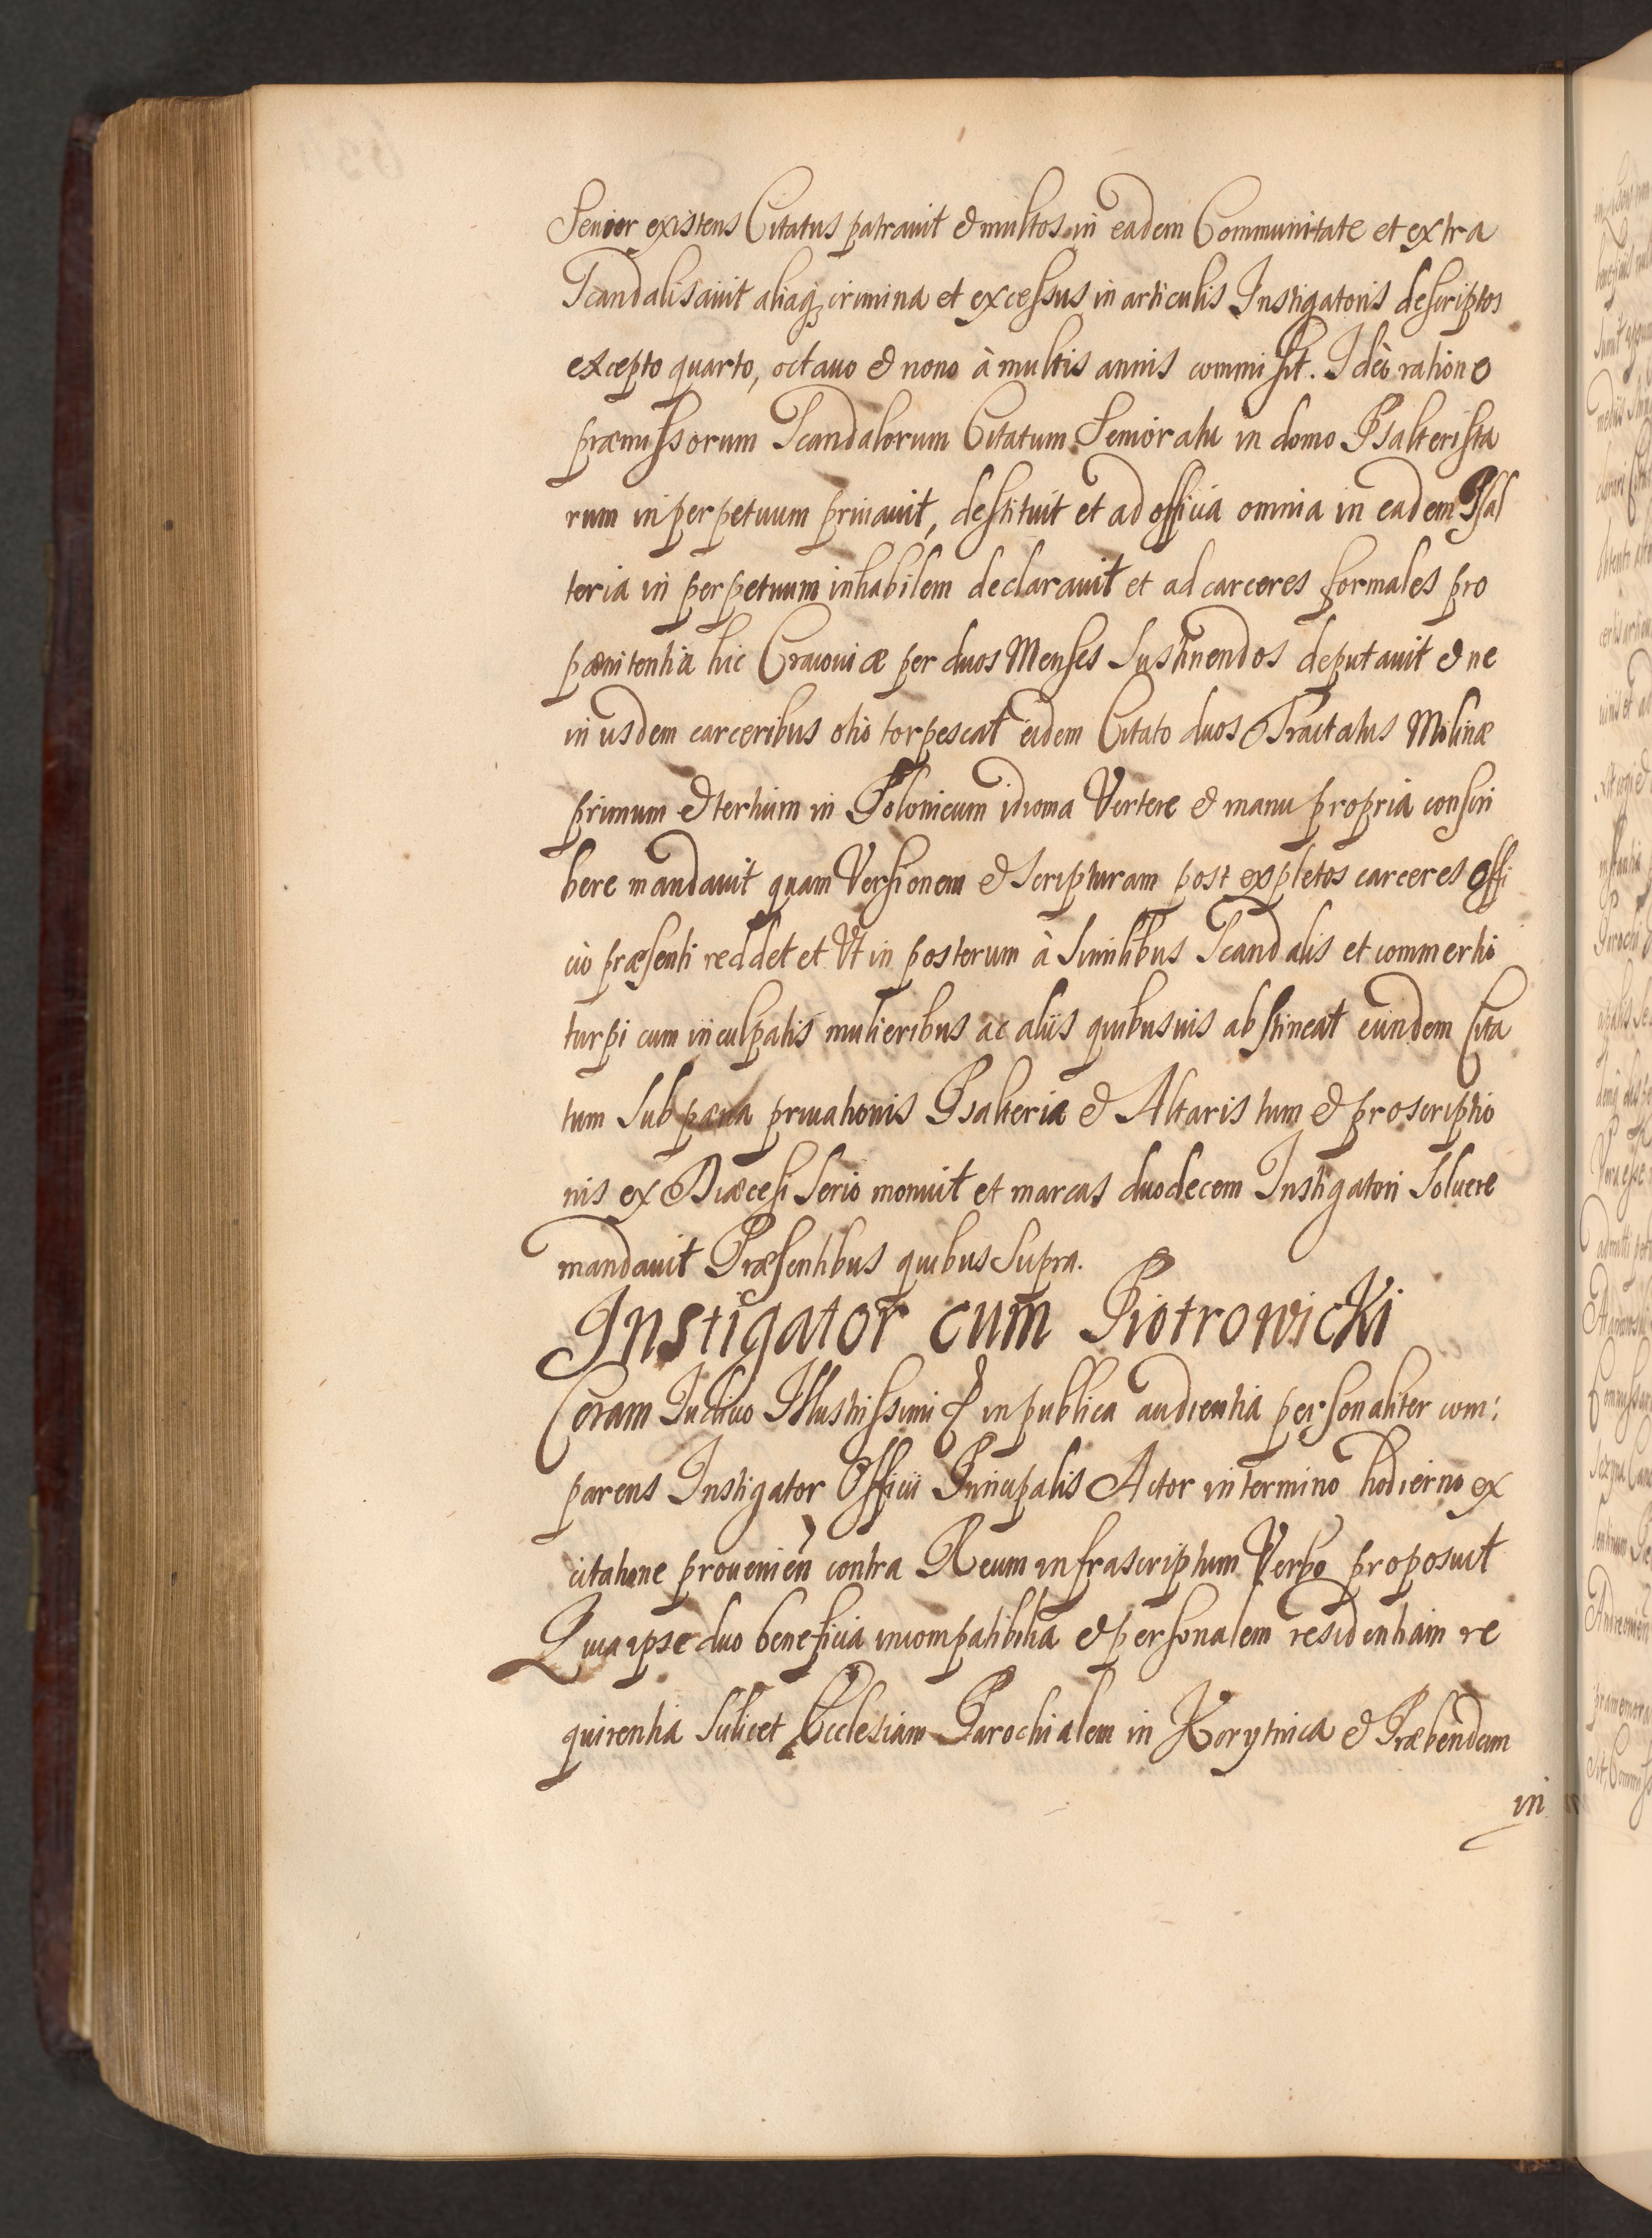 Senior existens Citatus patrauit & multos in eadem Communitate et extra
Scandalisauit aliaq; crimina et excessus in articulis Instigatoris descriptos
excepto quarto, octauo & nono à multis annis commisit. Ideò ratione
præmissorum Scandalorum Citatum Senioratu in domo Psalterista
rum in perpetuum priuauit, destituit et ad officia omnia in eadem Psal
teria in perpetuum inhabilem declarauit et ad carceres formales pro
pœnitentia hic Cracouiæ per duos Menses Sustinendos deputauit & ne
in ijsdem carceribus otio torpescat eidem Citato duos Tractatus Molinæ
primum & tertium in Polonicum idioma Vertere & manu propria conscri
bere mandauit quam Versionem & Scripturam post expletos carceres offi
cio præsenti reddet et Vt in posterum à Similibus Scandalis et commertio
turpi cum inculpatis mulieribus ac aliis quibusuis abstineat eundem Cita
tum Sub pæna priuationis Psalteriæ & Altaris tum & proscriptio
nis ex Diæcesi Serio monuit et marcas duodecem Instigatori Soluere
mandauit Præsentibus quibus Supra.
Instigator cum Piotrowicki
Coram Iudicio Illustrissimi & in publica audientia personaliter com:
parens Instigator Officii Principalis Actor in termino hodierno ex
citatione prouenien̄ contra Reum infrascriptum Verbo proposuit
Quia ipse duo beneficia incompatibilia & personalem residentiam re
quirentia Scilicet Ecclesiam Parochialem in Korytnica & Præbendam
in